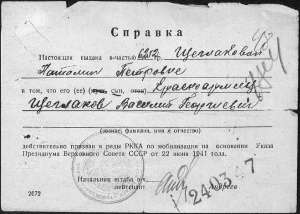 Справка
Настоящая выдана в-частью 6212 Щеглаковой
Наталии Петровне
в том, что его (ее) сын, красноармеец
Щеглаков Василий Георгиевич
(звание, фамилия, имя и отчество)
действительно призван в ряды РККА по мобилизации на основании Указа
Президиума Верховного Совета СССР от 22 июня 1941 года.
Начальник штаба
2672